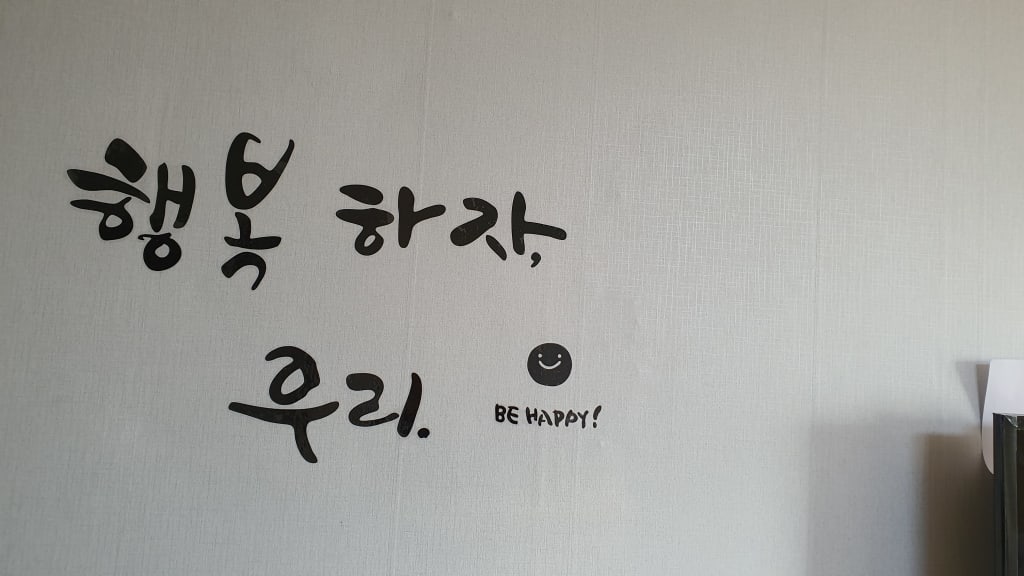 행복 하자,
우리.
BE HAPPY!